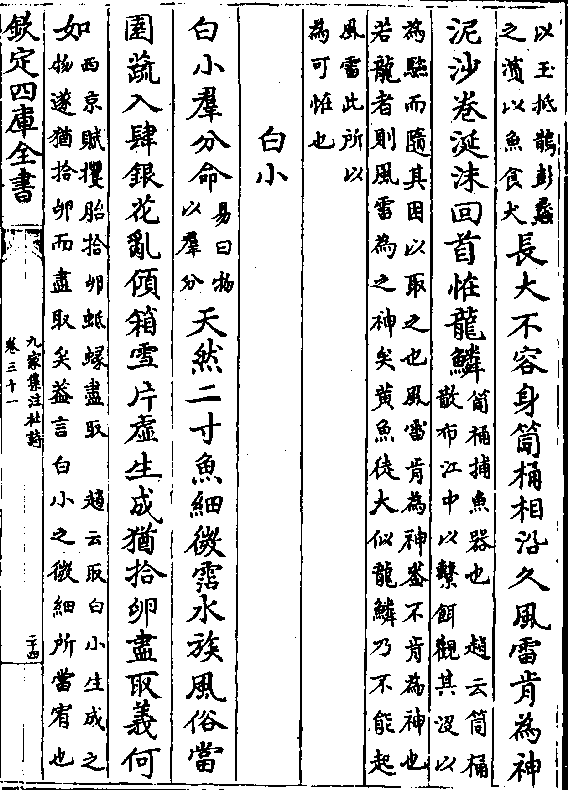 以玉抵鵲彭蠡
之濱以魚食犬
長大不容身筒桶相沿久風雷肯為神
泥沙卷涎沫回首怪龍鱗
筒桶捕魚器也 趙云筒桶
散布江中以繫餌觀其沒以
為驗而隨其困以取之也風雷肯為神葢不肯為神也
若龍者則風雷為之神矣黄魚徒大似龍鱗乃不能起
風雷此所以
為可怪也
白小
白小羣分命
易曰物
以羣分
天然二寸魚細微霑水族風俗當
園蔬入肆銀花亂傾箱雪片虚生成猶拾卵盡取義何
如
西京賦攫胎拾卵蚳蝝盡取 趙云取白小生成之
物遂猶拾卵而盡取矣葢言白小之微細所當宥也
欽定四庫全書
九家集注杜詩
卷三十一
二十四